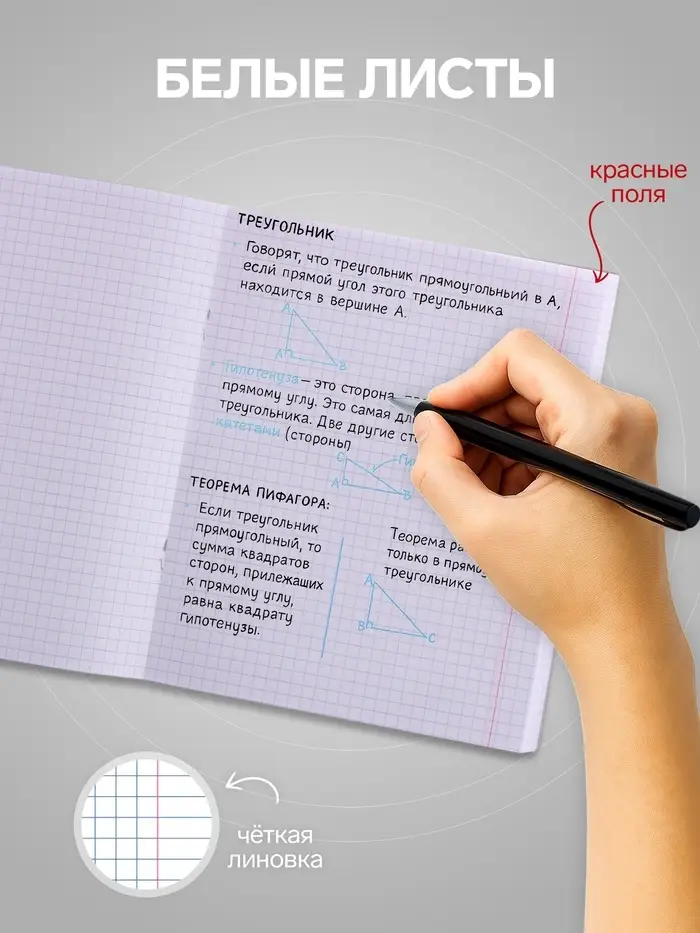 БЕЛЫЕ ЛИСТЫ
красные
поля
ТРЕУГОЛЬНИК
Говорят, что треугольник прямоугольный в А,
если прямой угол этого треугольника
находится в вершине А.
A
A
B
Гипотенуза – это сторона
прямому углу. Это самая
треугольника. Две другие
катетами (стороны
C
A
B
ТЕОРЕМА ПИФАГОРА:
Если треугольник
прямоугольный, то
сумма квадратов
сторон, прилежащих
к прямому углу,
равна квадрату
гипотенузы.
Теорема
только в
треугольнике
A
B
C
чёткая
линовка